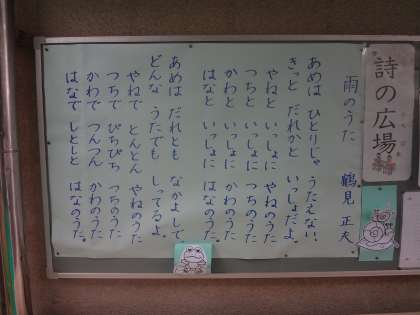 詩の広場
雨のうた
鶴見 正夫
あめは ひとりじゃ うたえない、
きっと だれかと いっしょだよ。
やねと いっしょに やねのうた
つちと いっしょに つちのうた
かわと いっしょに かわのうた
はなと いっしょに はなのうた。
あめは だれとも なかよしで
どんな うたでも しってるよ。
やねで とんとん やねのうた
つちで ぴちぴち つちのうた
かわで つんつん かわのうた
はなで しとしと はなのうた。